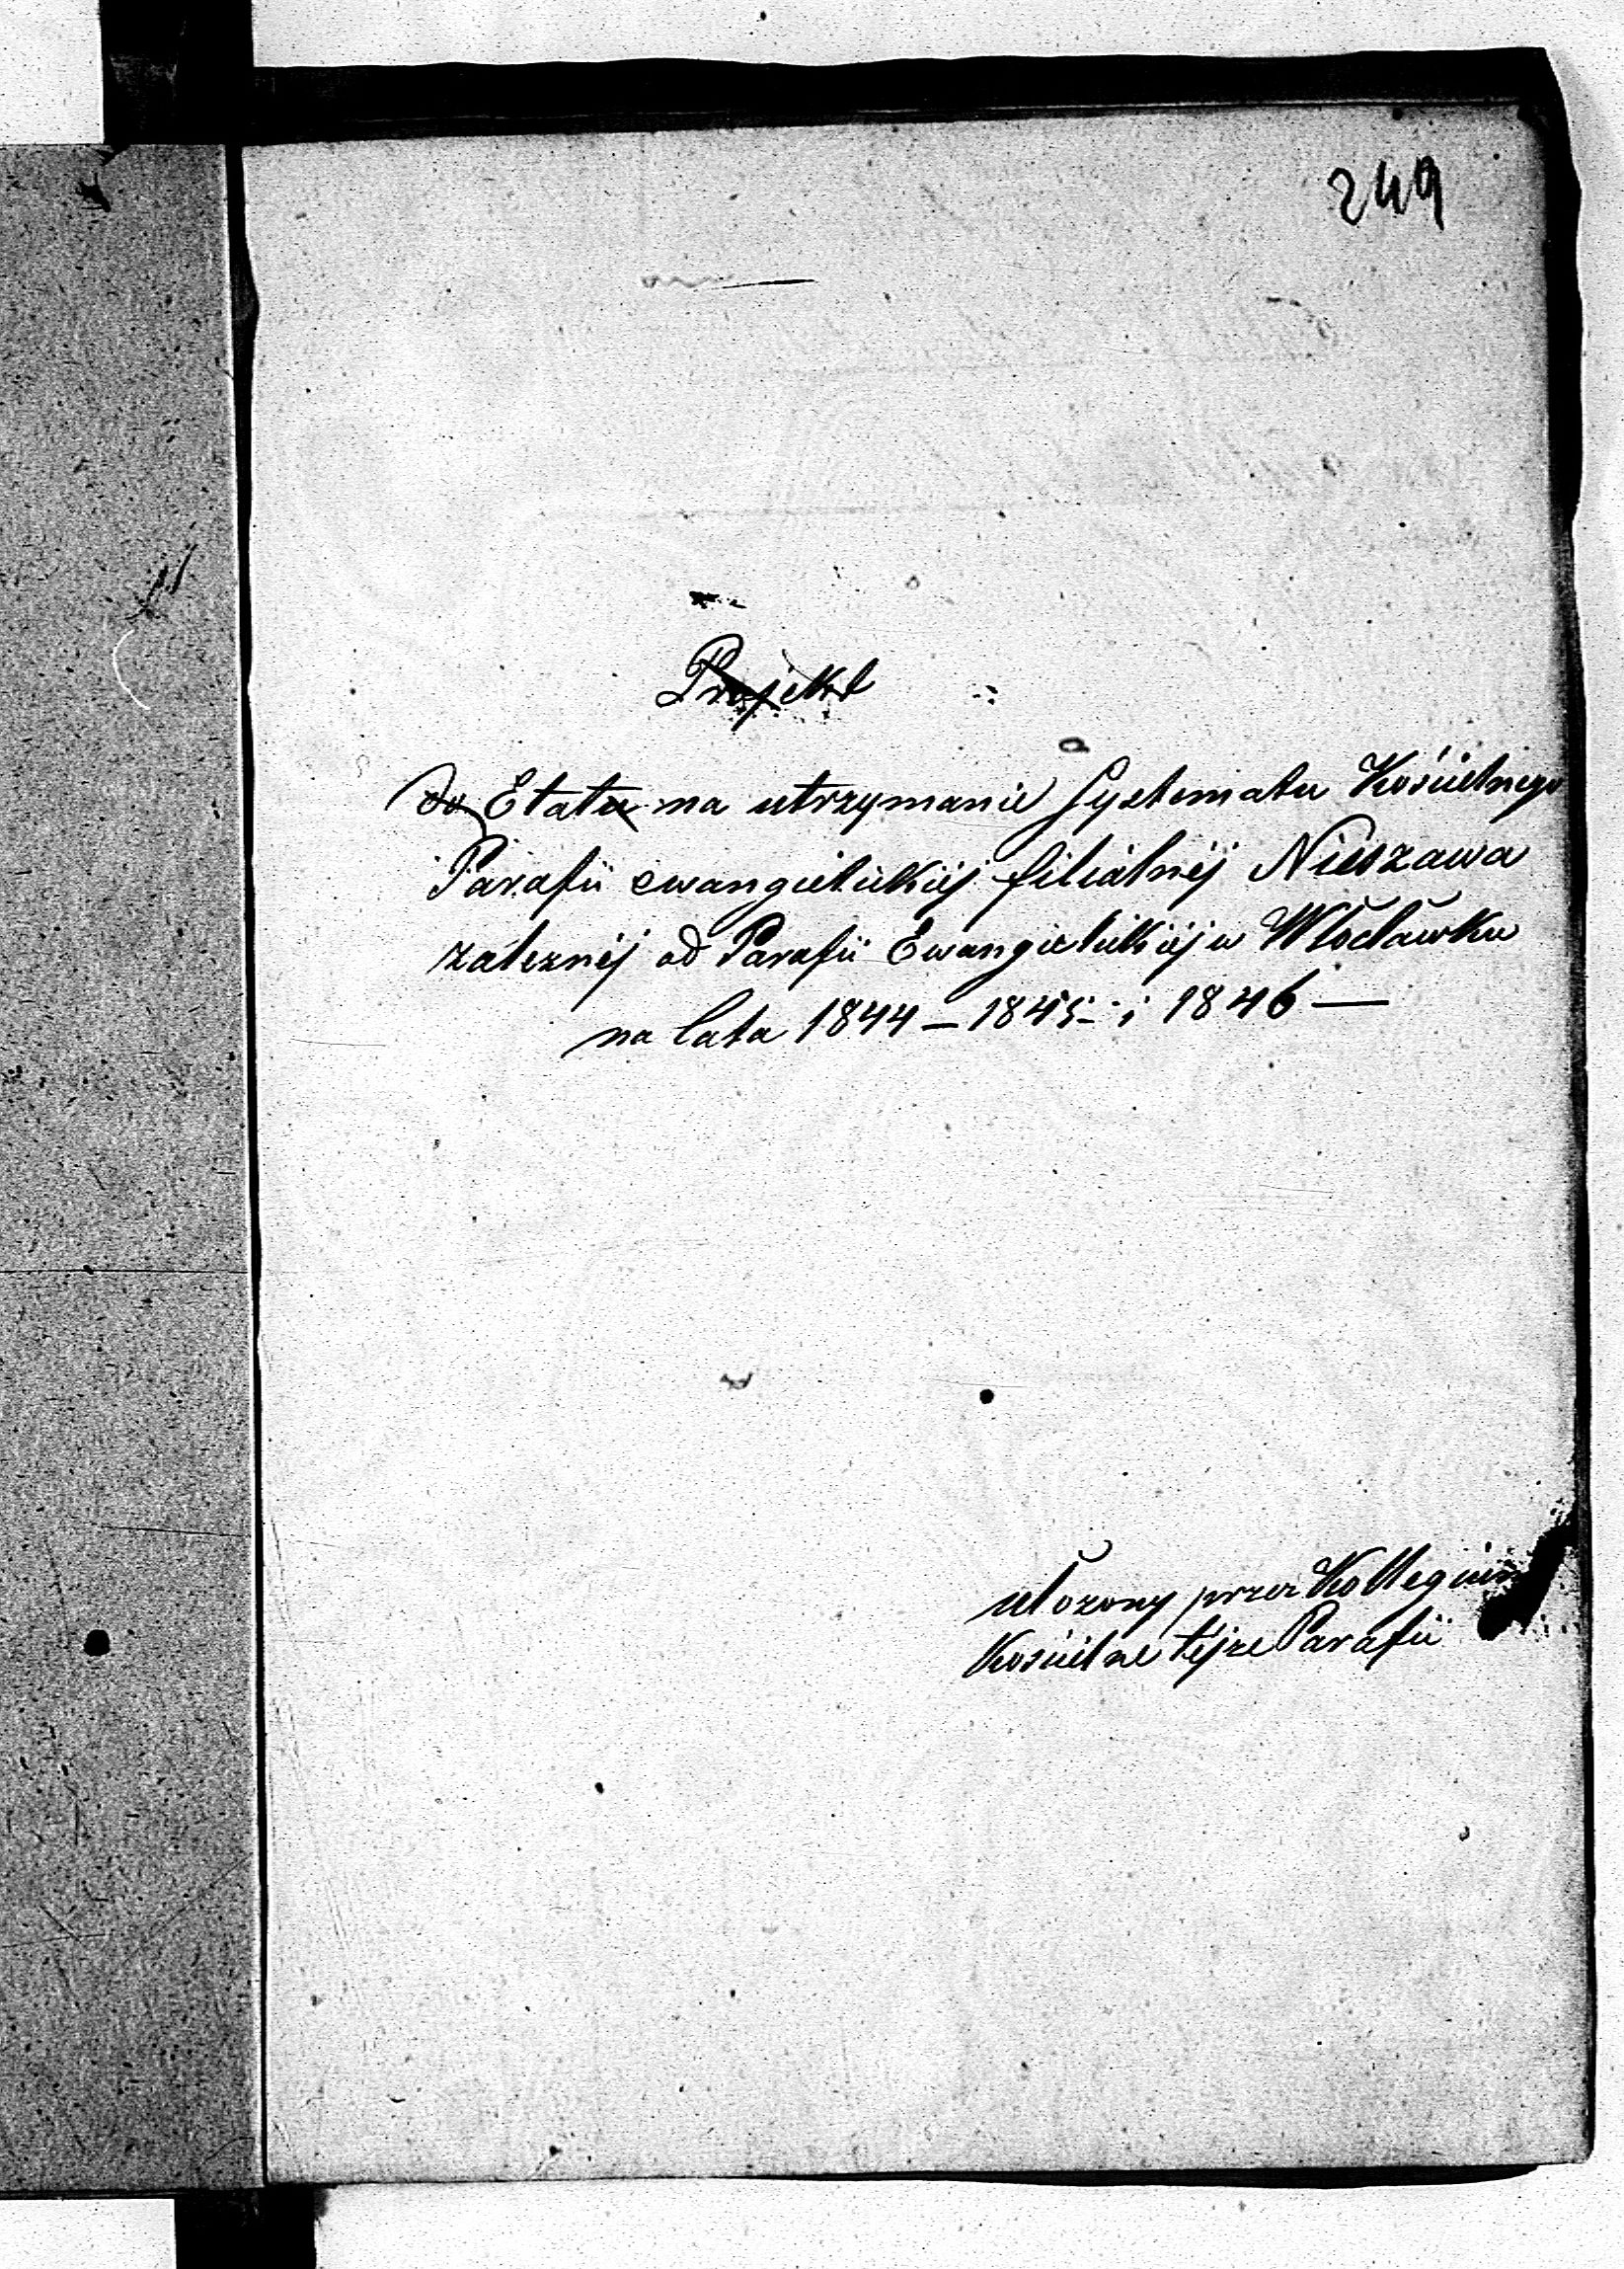 249
Projekt
do Etatu na utrzymanie Systematu Kościelnego
Parafii ewangielickiéj filialnéj Nieszawa
zależnéj od Parafii Ewangielickiéj w Włocławku
na lata 1844 – 1845 – i 1846 —
ułożony przez Kollegium
Kościelne téjże Parafii